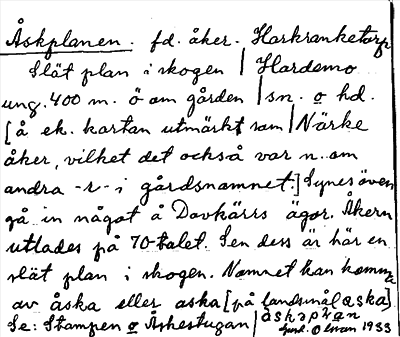 Åskplanen. fd. åker. Harkranketorp
Slät plan i skogen | Hardemo
ung. 400 m. ö om gården | sn. o hd.
[å ek. kartan utmärkt som | Närke
åker, vilket det också var n. om
andra -r- i gårdsnamnet.] Synes även
gå in något å Davkärrs ägor. Åkern
utlades på 70-talet. Sen dess är här en
slät plan i skogen. Namnet kan komma
av åska eller aska [på landsmål aska]
Se: Stampen o Åskestugan | åskaplan
1933